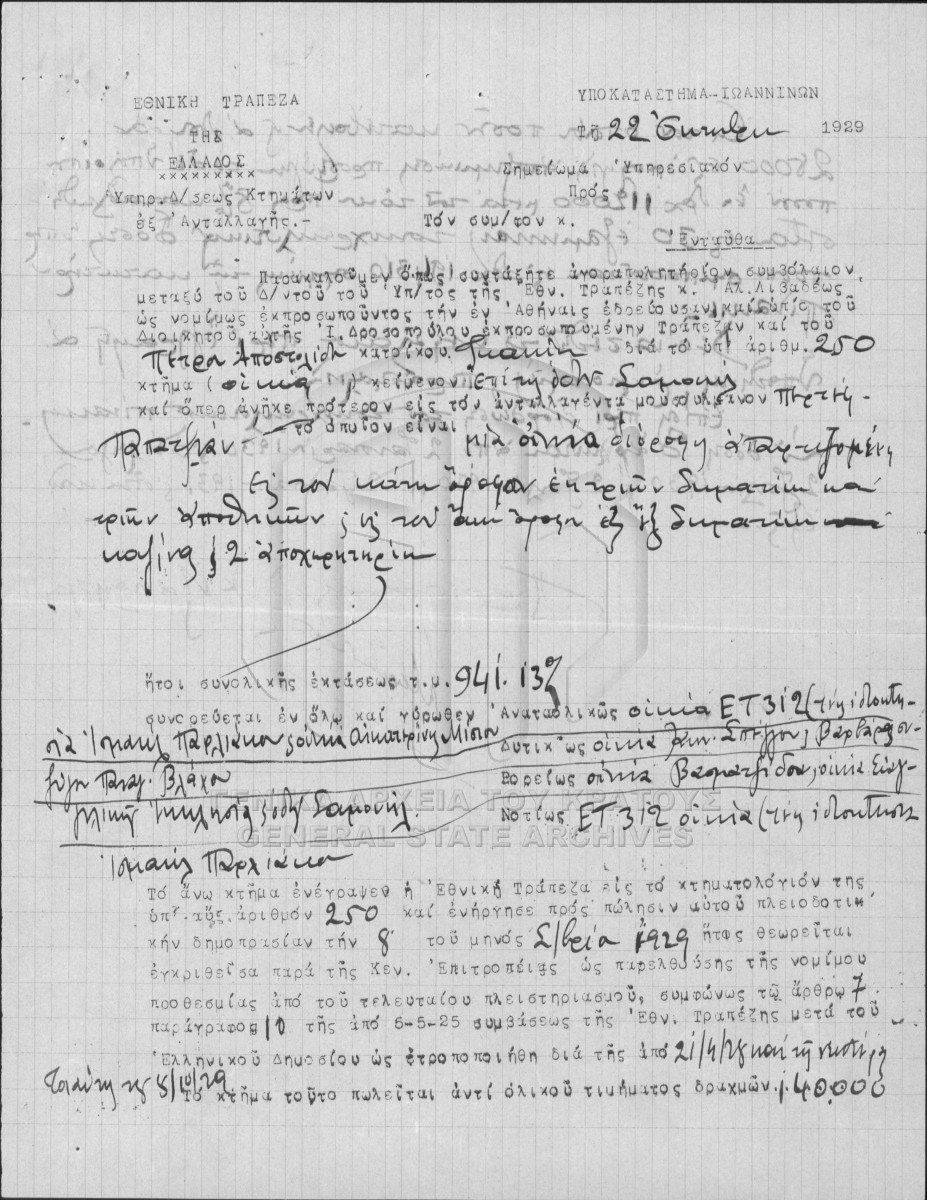 ΕΘΝΙΚΗ ΤΡΑΠΕΖΑ
ΤΗΣ
ΕΛΛΑΔΟΣ
×××××××××
Υπηρ.Δ/σεως Κτημάτων
ἐξ Ἀνταλλαγῆς.-
ΥΠΟΚΑΤΑΣΤΗΜΑ-ΙΩΑΝΝΙΝΩΝ
Τῇ 22 Ὀκτωβρ 1929
Σημείωμα Ὑπηρεσιακόν
Πρός
Τόν συμ/φον κ.
Ἐνταῦθα
Παρακαλοῦμεν ὅπως συντάξητε ἀγοραπωλητήριον συμβόλαιον
μεταξύ τοῦ Δ/ντοῦ τοῦ Ὑπ/τος τῆς Ἐθν. Τραπέζης κ. Αλ.Λιβαδέως
ὡς νομίμως ἐκπροσωποῦντος τήν ἐν Ἀθήναις ἑδρεύουσαν καί ὑπό τοῦ
Διοικητοῦ αὐτῆς Ἰ.Δροσοπούλου ἐκπροσωπουμένην Τράπεζαν καί τοῦ
Πέτρο Ἀποστολίδη κατοίκου διά τό ὑπ' ἀριθμ. 250
κτῆμα ( οἰκία ) κείμενον Ἐπί τῆς ὁδοῦ Σαμουήλ
καί ὅπερ ἀνῆκε πρότερον εἰς τόν ἀνταλλαγέντα μουσουλμάνον
τό ὁποῖον εἶναι μία οἰκία διόροφη ἀπαρτιζομένη
εἰς τόν κάτω ὄροφον ἐκ τριῶν δωματίων καί
τριῶν ἀποθηκῶν εἰς τόν ἄνω ὄροφον ἐξ ἕξ δωματίων
2 ἀποχωρητηρίων
ἤτοι συνολικῆς ἐκτάσεως τ.μ. 941.13%
συνορεύεται ἐν ὅλῳ καί γύρωθεν Ἀνατολικῶς οἰκία ΕΤ 312 (τέως ἰδιοκτη-
σία Ἰσμαήλ Παρλιάκου οἰκία Αἰκατερίνης Μίσιου Δυτικῶς οἰκία
Παναγ. Βλάχου Βορείως οἰκία
Σαμουήλ. Νοτίως ΕΤ 312 οἰκία (τέως ἰδιοκτησία
Ἰσμαήλ Παρλιάκου
ΓΕΝΙΚΑ ΑΡΧΕΙΑ ΤΟΥ ΚΡΑΤΟΥΣ
GENERAL STATE ARCHIVES
Τό ἄνω κτῆμα ἐνέγραψεν ἡ Ἐθνική Τράπεζα εἰς τό κτηματολόγιόν της
ὑπ' αὔξ.ἀριθμόν 250 καί ἐνήργησε πρός πώλησιν αὐτοῦ πλειοδοτι
κήν δημοπρασίαν τήν 8 τοῦ μηνός Σ/βρίου 1929 ἥτις θεωρεῖται
ἐγκριθεῖσα παρά τῆς Κεν. Ἐπιτροπείας ὡς παρελθούσης τῆς νομίμου
προθεσμίας ἀπό τοῦ τελευταίου πλειστηριασμοῦ, συμφώνως τῷ ἄρθρῳ 7
παράγραφος 10 τῆς ἀπό 5-5-25 συμβάσεως τῆς Ἐθν. Τραπέζης μετά τοῦ
Ἑλληνικοῦ Δημοσίου ὡς ἐτροποποιήθη διά τῆς ἀπό 21/4/28 καί τῆς νεωτέρας
τοιαύτης τῆς 5/10/29
Τό κτῆμα τοῦτο πωλεῖται ἀντί ὁλικοῦ τιμήματος δραχμῶν 140.000